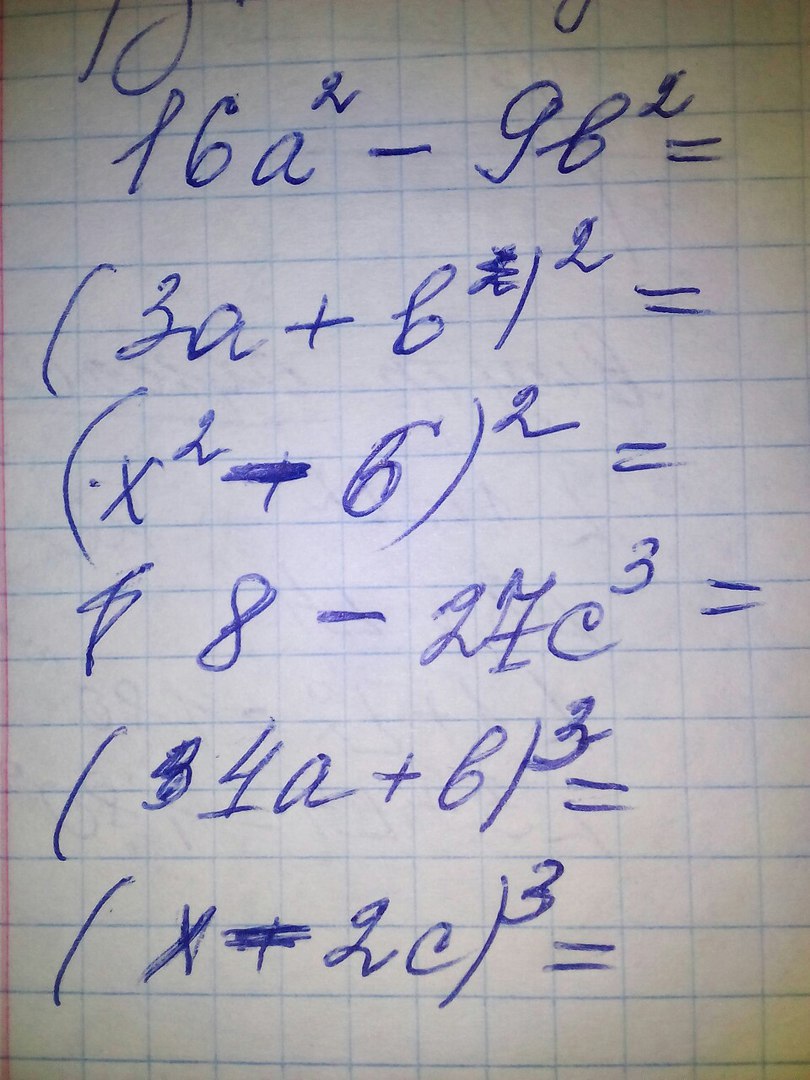 16a² - 9b² =
(3a + b)² =
(x² - 6)² =
8 - 27c³ =
(4a + b)³ =
(x - 2c)³ =